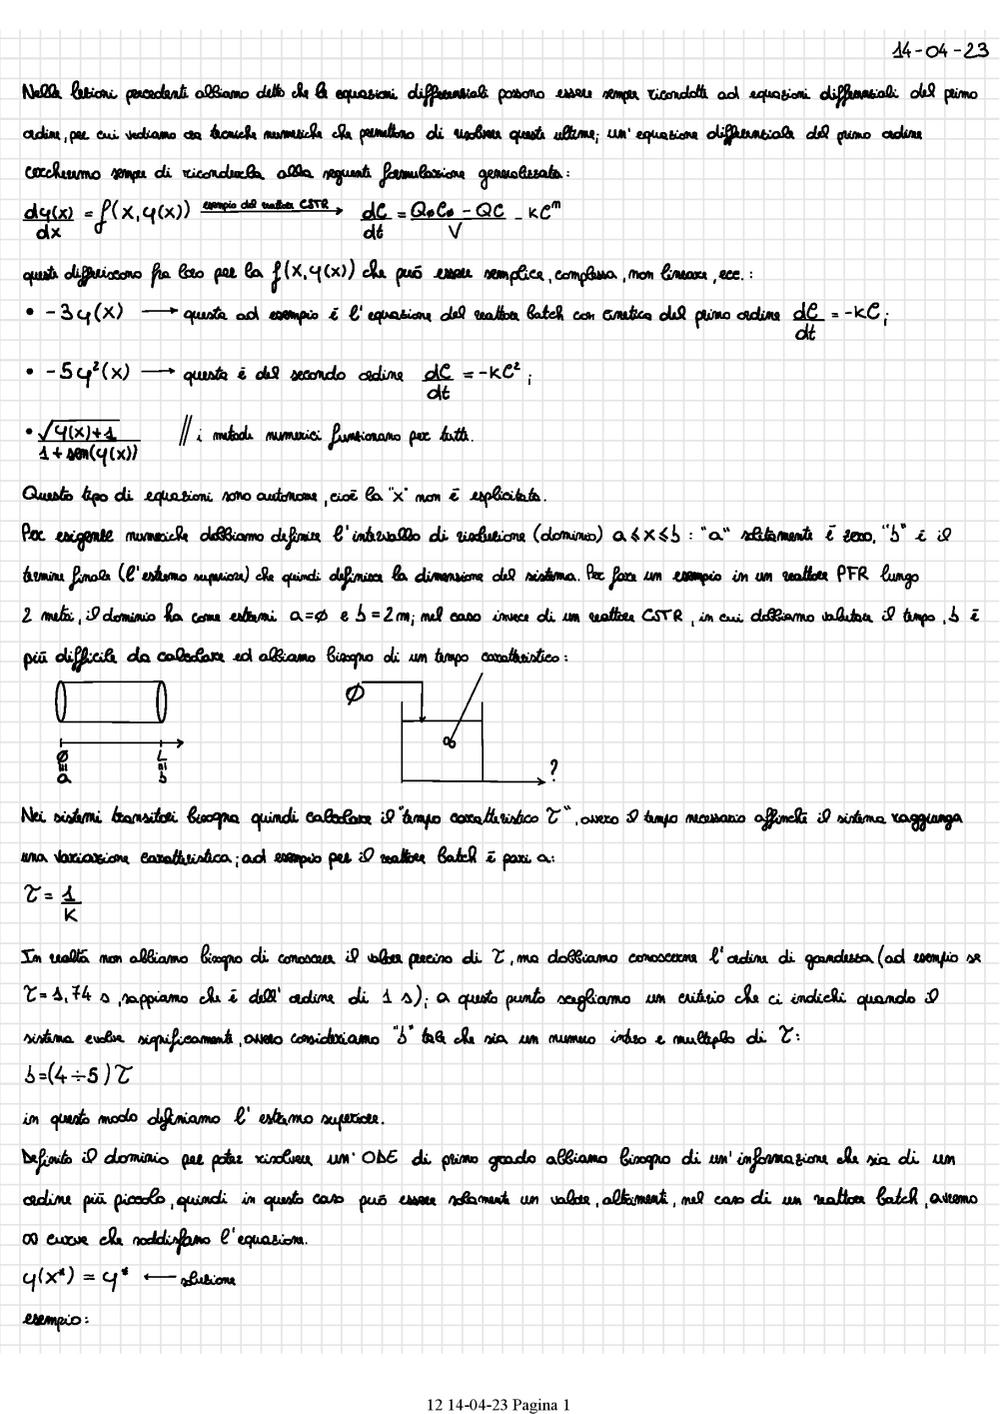 14-04-23
Nelle lezioni precedenti abbiamo detto che le equazioni differenziali possono essere sempre ricondotte ad equazioni differenziali del primo
ordine, per cui vediamo ora tecniche numeriche che permettono di risolvere queste ultime; un'equazione differenziale del primo ordine
cercheremo sempre di ricondurla alla seguente formulazione generalizzata:
dy(x)/dx = f(x, y(x)) esempio del reattore CSTR → dC/dt = (Q₀C₀ - QC)/V - kCⁿ
queste differiscono fra loro per la f(x, y(x)) che può essere semplice, complessa, non lineare, ecc.:
• -3y(x) → questa ad esempio è l'equazione del reattore batch con cinetica del primo ordine dC/dt = -kC;
• -5y²(x) → questa è del secondo ordine dC/dt = -kC²;
• √(y(x)+1) / (1+sen(y(x))) // i metodi numerici funzionano per tutti.
Questo tipo di equazioni sono autonome, cioè la "x" non è esplicitata.
Per esigenze numeriche dobbiamo definire l'intervallo di risoluzione (dominio) a≤x≤b : "a" solitamente è zero, "b" è il
termine finale (l'estremo superiore) che quindi definisce la dimensione del sistema. Per fare un esempio in un reattore PFR lungo
2 metri, il dominio ha come estremi a=ø e b=2m; nel caso invece di un reattore CSTR, in cui dobbiamo valutare il tempo, b è
più difficile da calcolare ed abbiamo bisogno di un tempo caratteristico:
ø
ø = a
L = b
?
Nei sistemi transitori bisogna quindi calcolare il "tempo caratteristico τ", ovvero il tempo necessario affinché il sistema raggiunga
una variazione caratteristica; ad esempio per il reattore batch è pari a:
τ = 1/k
In realtà non abbiamo bisogno di conoscere il valore preciso di τ, ma dobbiamo conoscerne l'ordine di grandezza (ad esempio se
τ=1,74 s, sappiamo che è dell'ordine di 1 s); a questo punto scegliamo un criterio che ci indichi quando il
sistema evolve significamente, ovvero consideriamo "b" tale che sia un numero intero e multiplo di τ:
b=(4÷5)τ
in questo modo definiamo l'estremo superiore.
Definito il dominio per poter risolvere un'ODE di primo grado abbiamo bisogno di un'informazione che sia di un
ordine più piccolo, quindi in questo caso può essere solamente un valore, altrimenti, nel caso di un reattore batch, avremo
∞ curve che soddisfano l'equazione.
y(x*) = y* ← soluzione
esempio:
12 14-04-23 Pagina 1